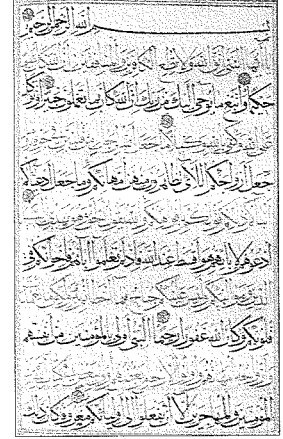 بسم الله الرحمن الرحيم
يا أيها النبي اتق الله ولا تطع الكافرين والمنافقين إن الله كان
حكيما واتبع ما يوحى إليك من ربك إن الله كان بما تعملون خبيرا وتوكل
على الله وكفى بالله وكيلا ما جعل الله لرجل من قلبين في جوفه وما
جعل أزواجكم اللائي تظاهرون منهن أمهاتكم وما جعل أدعياءكم
أبناءكم ذلكم قولكم بأفواهكم والله يقول الحق وهو يهدي السبيل
ادعوهم لآبائهم هو أقسط عند الله فإن لم تعلموا آباءهم فإخوانكم في
الدين ومواليكم وليس عليكم جناح فيما أخطأتم به ولكن ما
قلوبكم وكان الله غفورا رحيما النبي أولى بالمؤمنين من أنفسهم
وأزواجه أمهاتهم وأولو الأرحام بعضهم أولى ببعض في كتاب الله من
المؤمنين والمهاجرين إلا أن تفعلوا إلى أوليائكم معروفا كان ذلك